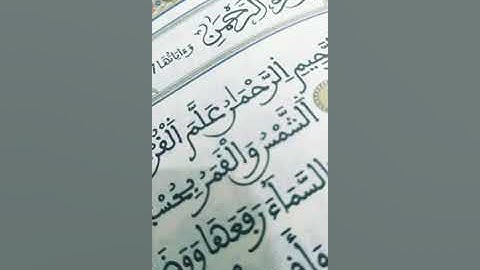 الرَّحْمَٰنِ وَءَايَاتُهَا 7
ـحِيمِ اِلرَّحْمَٰنُ عَلَّمَ اَلْقُرْ
اَلشَّمْسُ وَالْقَمَرُ بِحُسْبَـ
السَّمَآءَ رَفَعَهَا وَوَضَـ